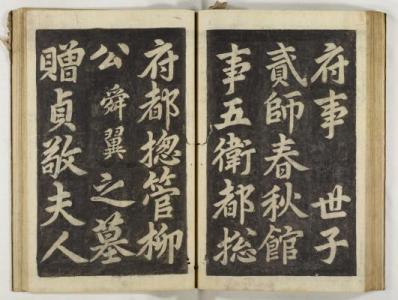 府事 世子
貳師春秋館
事五衛都捴
府都摠管柳
公舜翼之墓
贈貞敬夫人